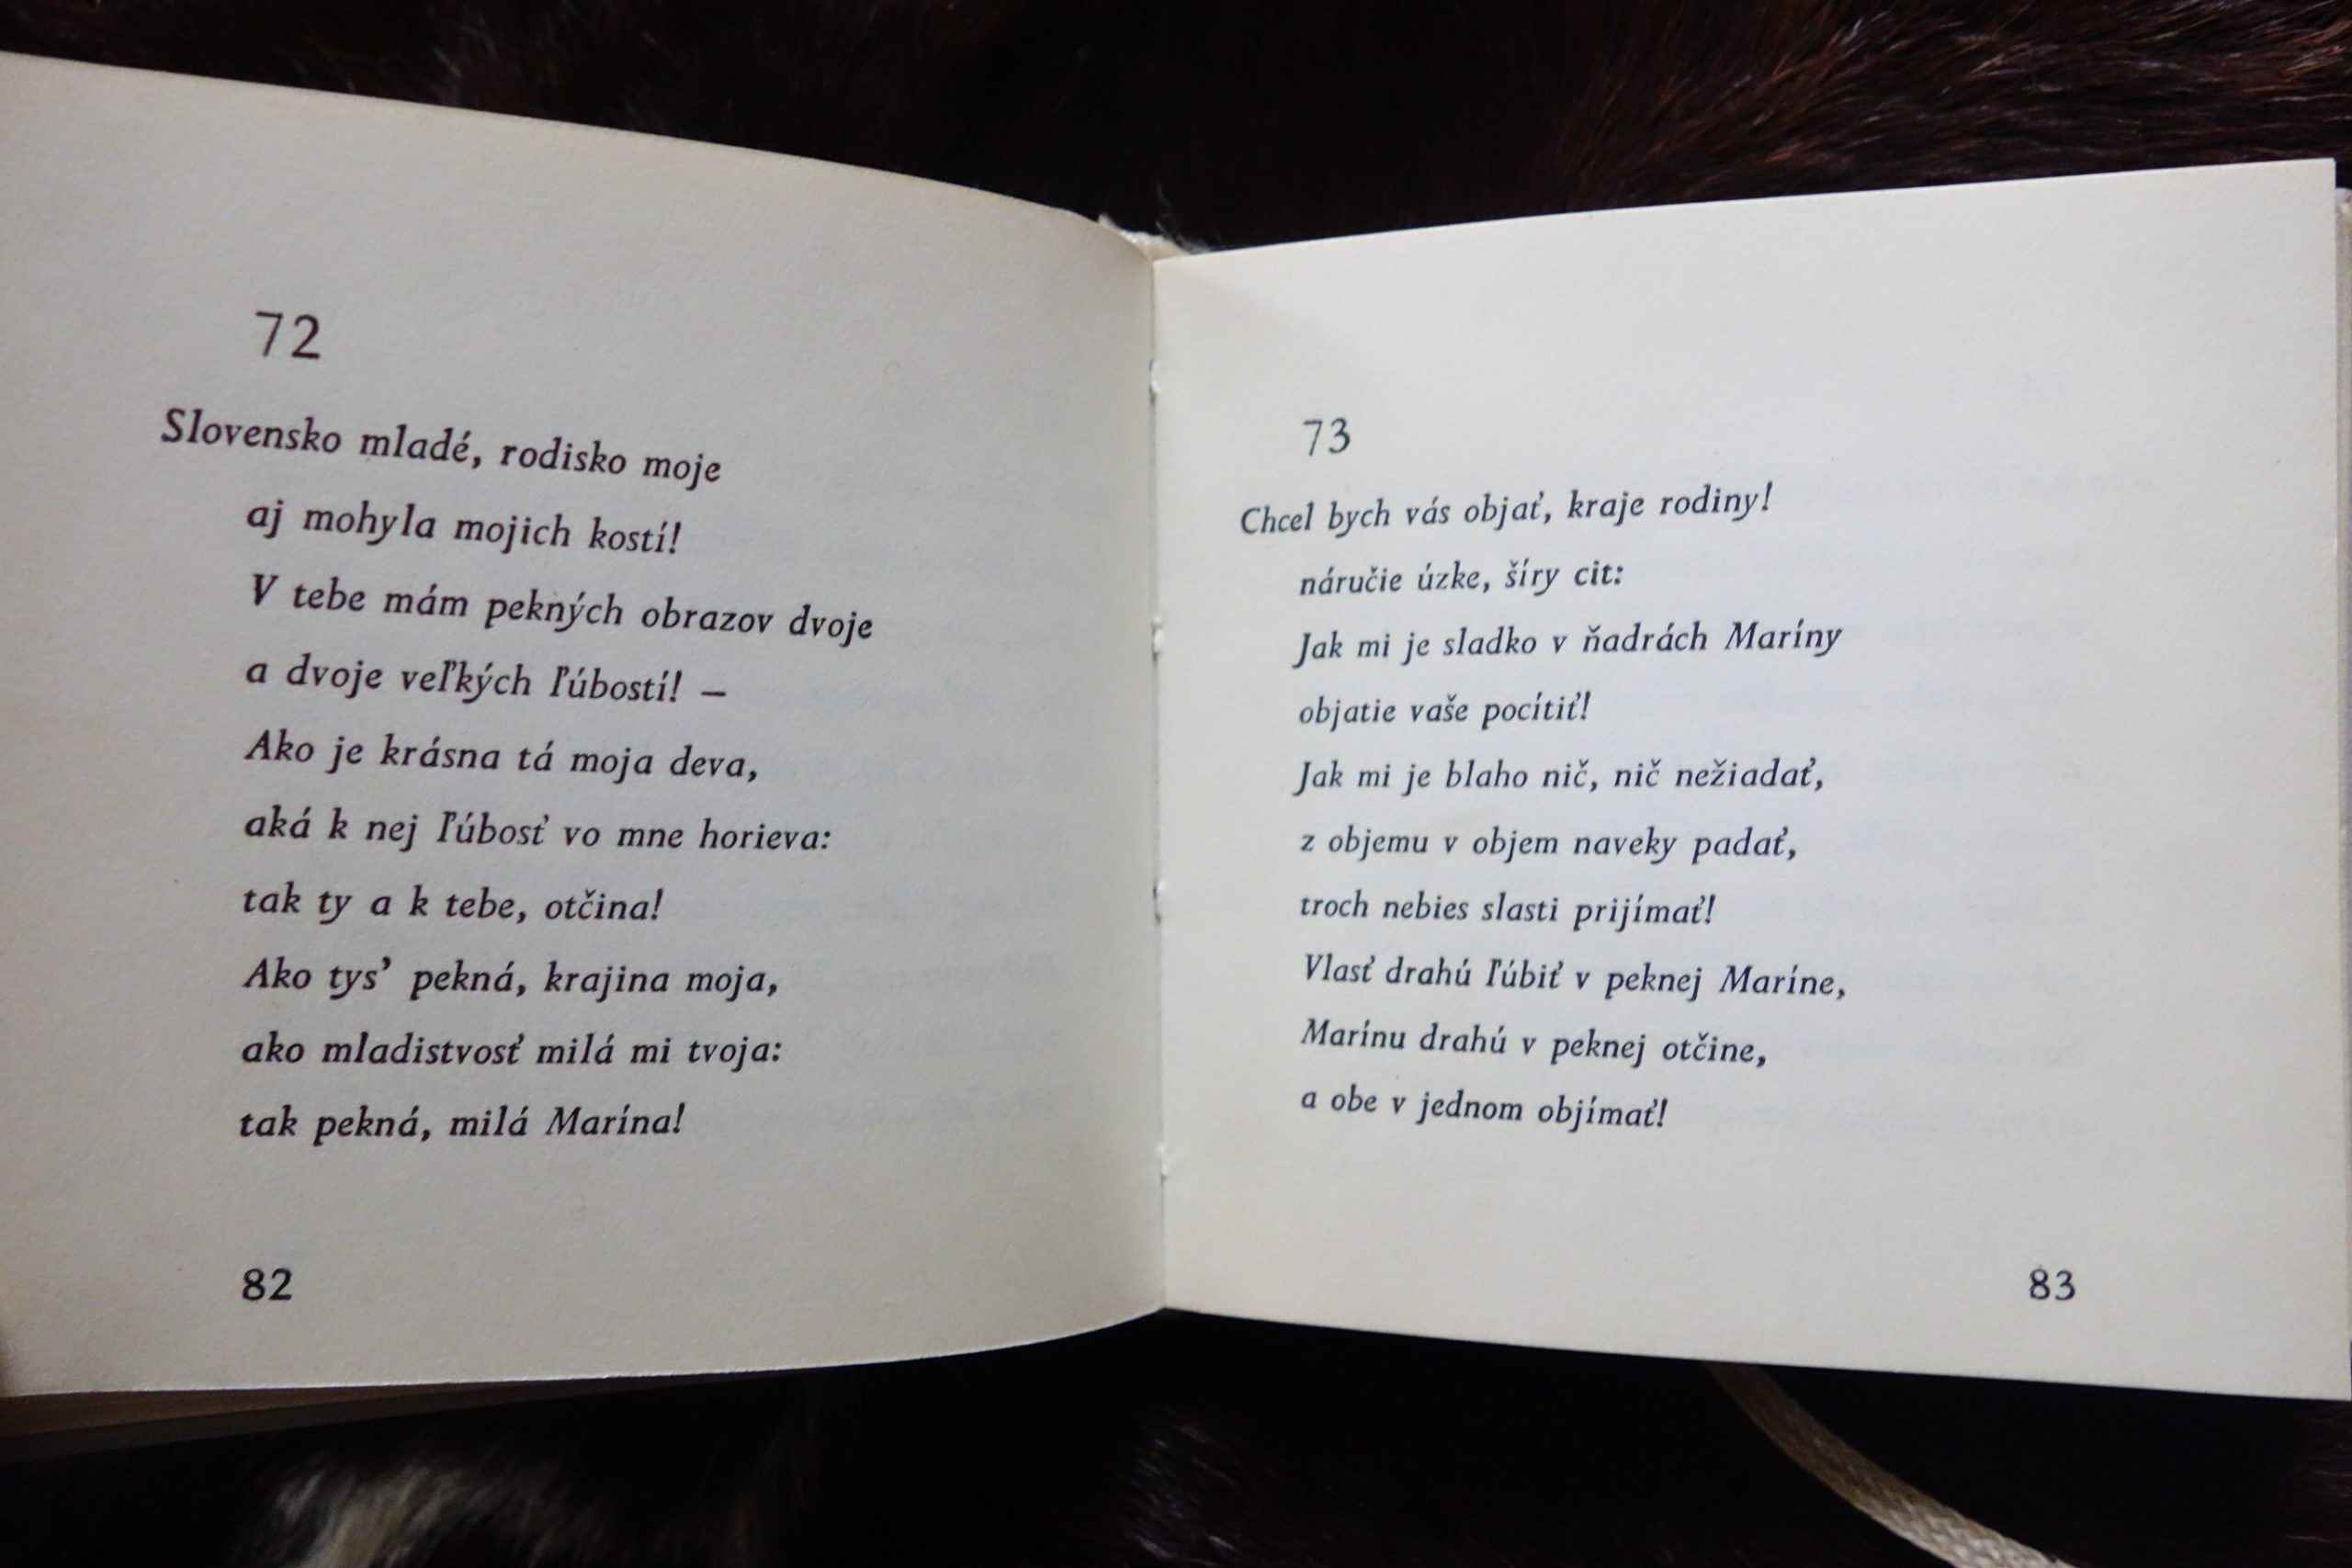 72
Slovensko mladé, rodisko moje
aj mohyla mojich kostí!
V tebe mám pekných obrazov dvoje
a dvoje veľkých ľúbostí! –
Ako je krásna tá moja deva,
aká k nej ľúbosť vo mne horieva:
tak ty a k tebe, otčina!
Ako tys’ pekná, krajina moja,
ako mladistvosť milá mi tvoja:
tak pekná, milá Marína!
82
73
Chcel bych vás objať, kraje rodiny!
náručie úzke, šíry cit:
Jak mi je sladko v ňadrách Maríny
objatie vaše pocítiť!
Jak mi je blaho nič, nič nežiadať,
z objemu v objem naveky padať,
troch nebies slasti prijímať!
Vlasť drahú ľúbiť v peknej Maríne,
Marínu drahú v peknej otčine,
a obe v jednom objímať!
83